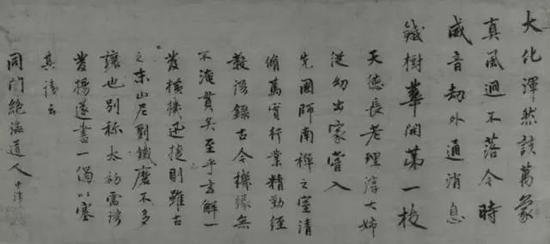 大化渾然該萬象
真風迥不落今時
威音劫外通消息
鐵樹華開第一枝
天德長老理淳大姉
從幼出家嘗入
先國師南禅之室清
脩篤實行業精勤經
教語録古今機縁無
不淹貫矣至乎言解一
發横機迅捷則雖古
之末山尼劉鐵磨不多
讓也別称太初需語
發揚遂書一偈以塞
其請云
同門絶海道人中津